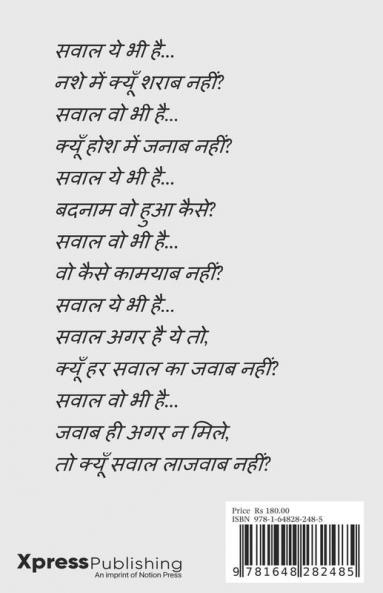 सवाल ये भी है...
नशे में क्यूँ शराब नहीं?
सवाल वो भी है...
क्यूँ होश में जनाब नहीं?
सवाल ये भी है...
बदनाम वो हुआ कैसे?
सवाल वो भी है...
वो कैसे कामयाब नहीं?
सवाल ये भी है...
सवाल अगर है ये तो,
क्यूँ हर सवाल का जवाब नहीं?
सवाल वो भी है...
जवाब ही अगर न मिले,
तो क्यूँ सवाल लाजवाब नहीं?
Price Rs 180.00
ISBN 978-1-64828-248-5
9 781648 282485
XpressPublishing
An imprint of Notion Press